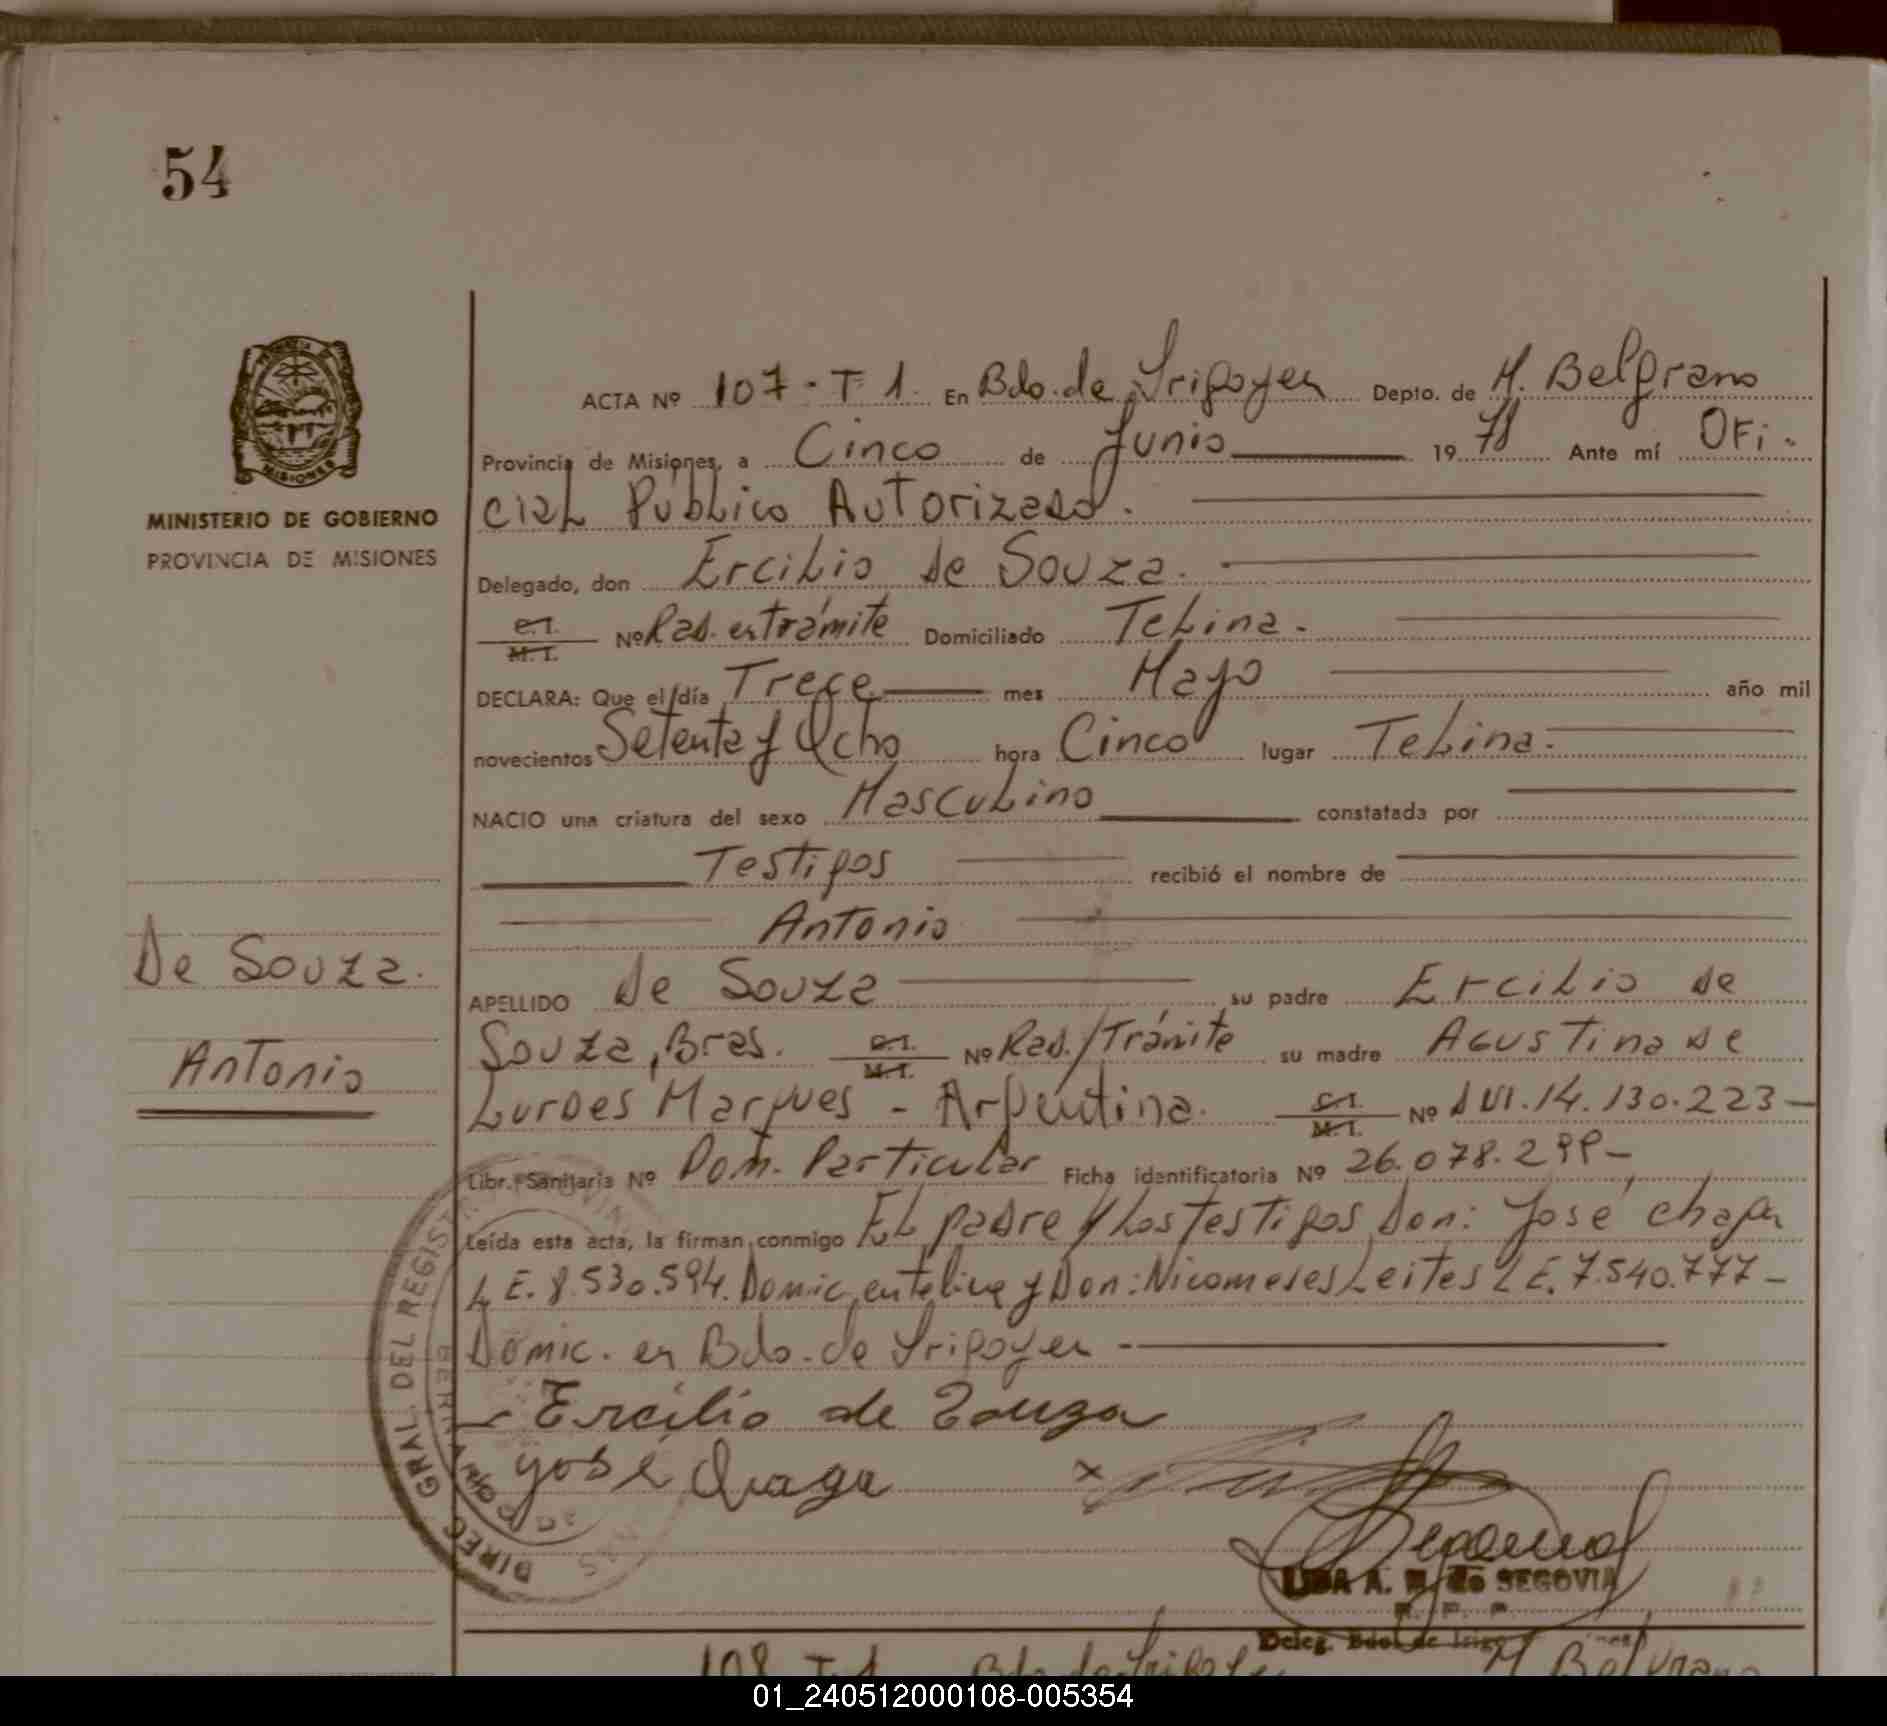 54
MINISTERIO DE GOBIERNO
PROVINCIA DE MISIONES
De Souza.
Antonio
ACTA Nº 107 - T 1. En Bdo. de Irigoyen Depto. de M. Belgrano
Provincia de Misiones, a Cinco de Junio 1978 Ante mí Ofi-
cial Público Autorizado.
Delegado, don Ercilio de Souza.
C.I. M.I. Nº Rad. en trámite Domiciliado Telina.
DECLARA: Que el día Trece mes Mayo año mil
novecientos Setenta y Ocho hora Cinco lugar Telina.
NACIO una criatura del sexo Masculino constatada por
Testigos recibió el nombre de
Antonio
APELLIDO de Souza su padre Ercilio de
Souza, Bras. C.I. M.I. Nº Rad./Trámite su madre Agustina de
Lurdes Marques - Argentina. C.I. M.I. Nº DNI. 14.130.223-
Libr. Sanitaria Nº Dom. Particular Ficha identificatoria Nº 26.078.299-
Leída esta acta, la firman conmigo El padre y los testigos Don: José chaga
L E. 8.530.594. Domic. en telina y Don: Nicomedes Leites L E. 7.540.777-
Domic. en Bdo. de Irigoyen -
Ercilio de Souza
José Chaga
x
A. de SEGOVIA
Deleg. Bdo. de Irigo
DIREC. GRAL. DEL REGIST
108 T 1 Bdo de Irigoye M Belgrano
01_240512000108-005354